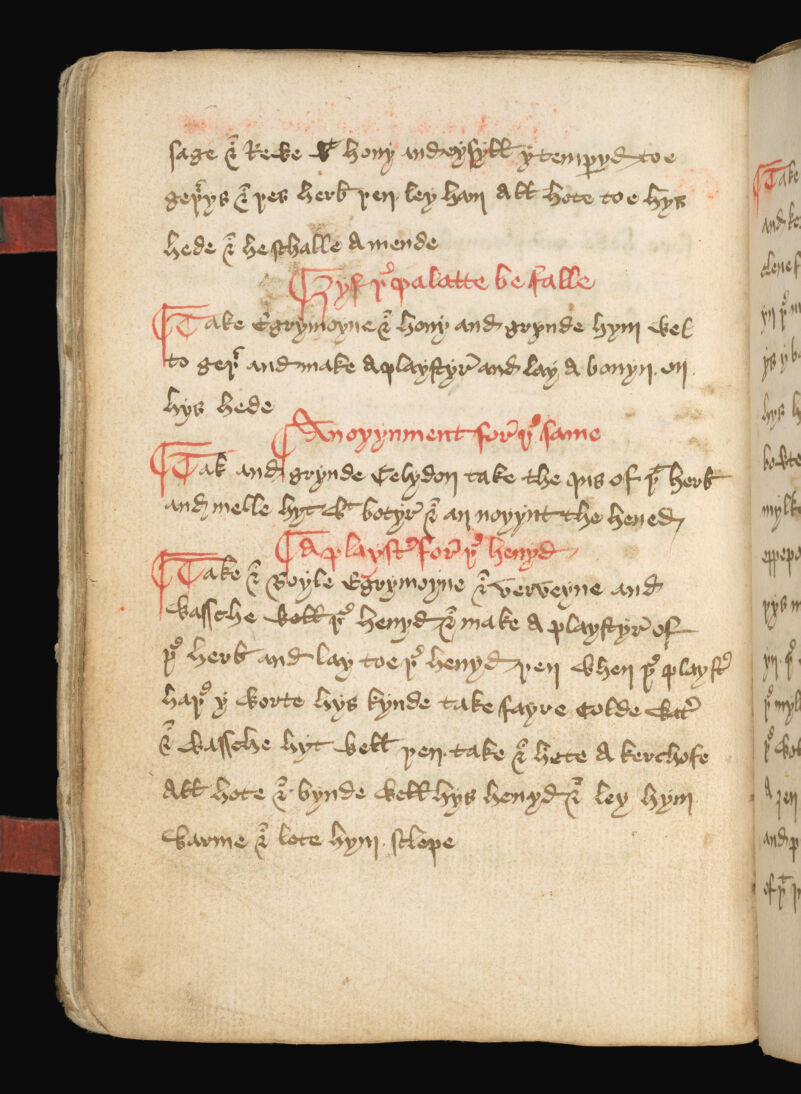 sage & Rewe wt hony and eysyll y tempyd to e
geþys & þes herb þen ley ham all hote to e hys
hede & he schalle amende
¶ Ȝyf þe palatte be falle
¶ Take Egrymoyne & hony and grynde hym wel
to geþr and make a playstyr and lay a bouyn on
hys hede
¶ An oyynment for þe same
¶ Tak and grynde Celydon take the jus of þe herb
and melle hyt wt botyr & an noyynt the heued
¶ A playstr for þe henyd
¶ Take & Boyle Egrymoyne & verveyne and
wassche well þe henyd & make a playstyr of
þe herb and lay to e þe henyd þen when þe playstr
haþe y worte hys kynde take fayre Colde watr
& wassche hyt well þen take & hete a kerchofe
all hote & bynde well hys henyd & ley hym
warme & lote hym sclepe
Take